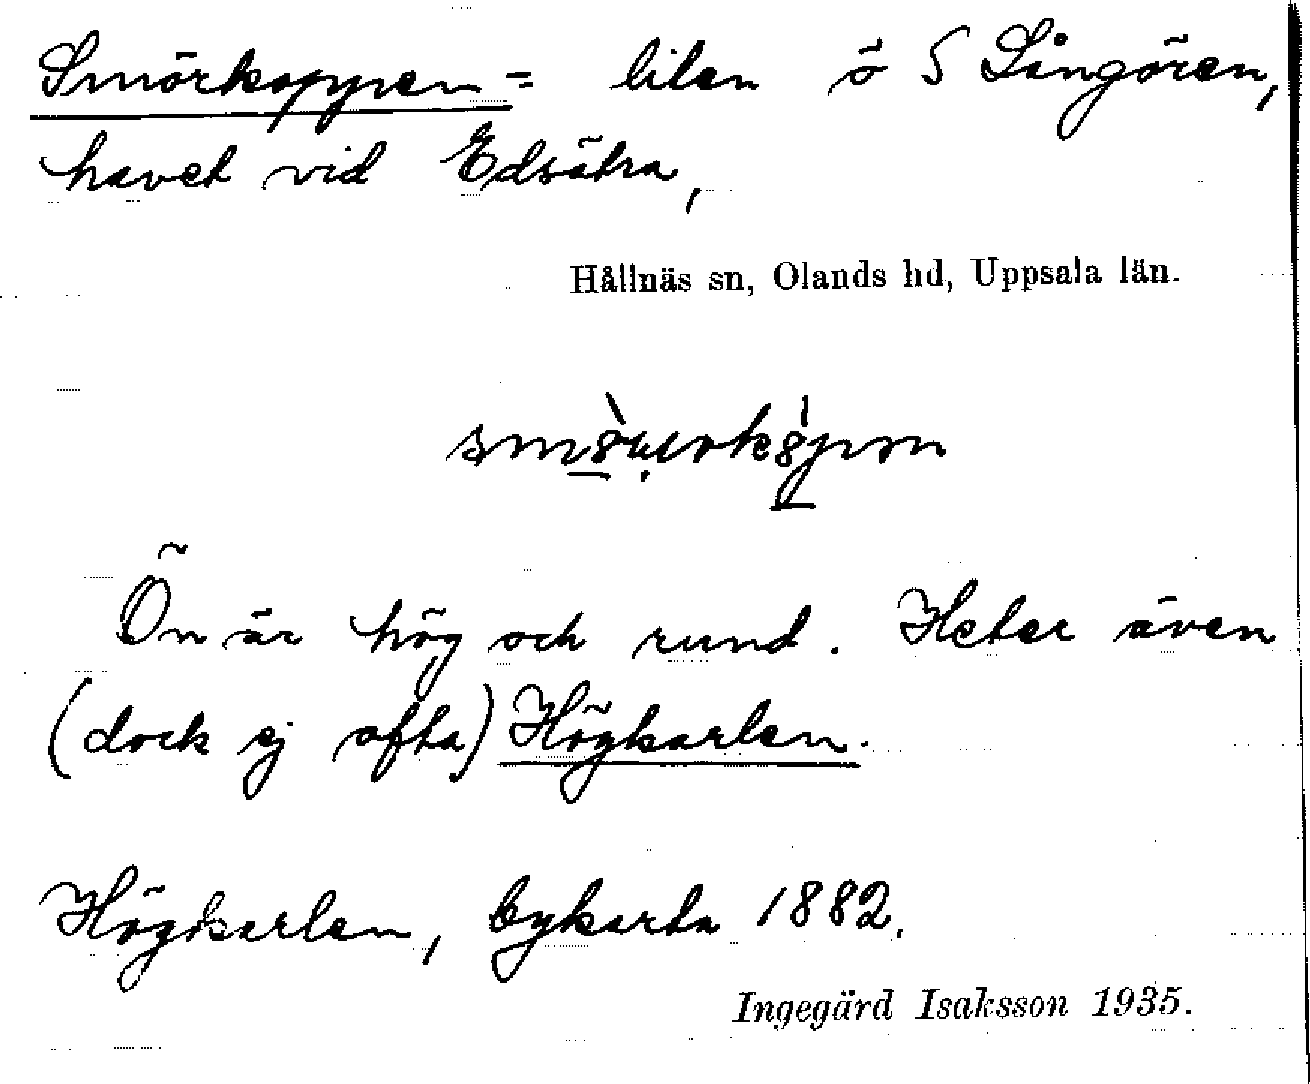 Smörkoppen = liten ö S Långören,
havet vid Edsätra,
Hållnäs sn, Olands hd, Uppsala län.
Ön är hög och rund. Heter även
(dock ej ofta) Högkarlen.
Högkarlen, bykarta 1882.
Ingegärd Isaksson 1935.